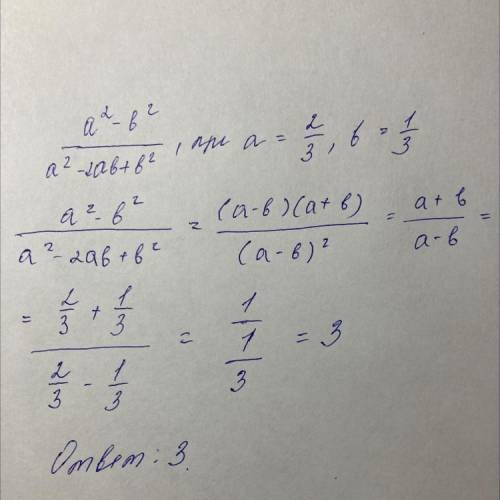 (a² - b²)/(a² - 2ab + b²), при a = 2/3, b = 1/3
(a² - b²)/(a² - 2ab + b²) = ((a - b)(a + b))/((a - b)²) = (a + b)/(a - b) =
= (2/3 + 1/3)/(2/3 - 1/3) = 1/(1/3) = 3
Ответ: 3.